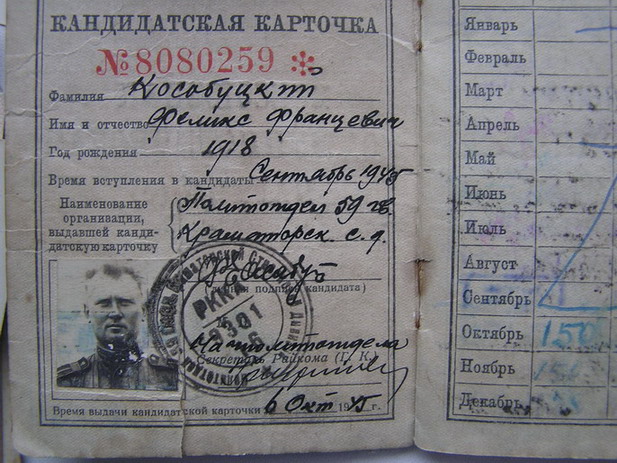 КАНДИДАТСКАЯ КАРТОЧКА
№8080259 *
Фамилия Кособуцкий
Имя и отчество Феликс Францевич
Год рождения 1918
Время вступления в кандидаты Сентябрь 1945
Наименование организации, выдавшей канди-датскую карточку
Политотдел 59 гв.
Краматорск с.д.
(личная подпись кандидата)
РККА
Начполитотдела
Секретарь Райкома (Г. К.)
Время выдачи кандидатской карточки 6 Окт 1945 г.
Январь
Февраль
Март
Апрель
Май
Июнь
Июль
Август
Сентябрь
Октябрь 150
Ноябрь
Декабрь